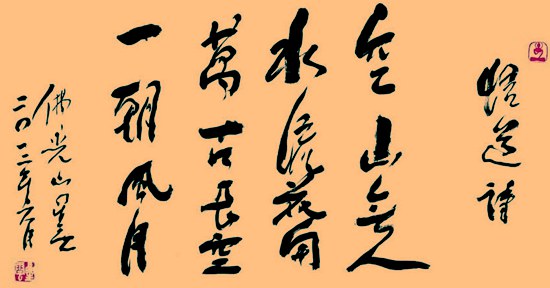 悟道詩
空山無人
水流花開
萬古長空
一朝風月
佛光山星雲
二〇一二年六月